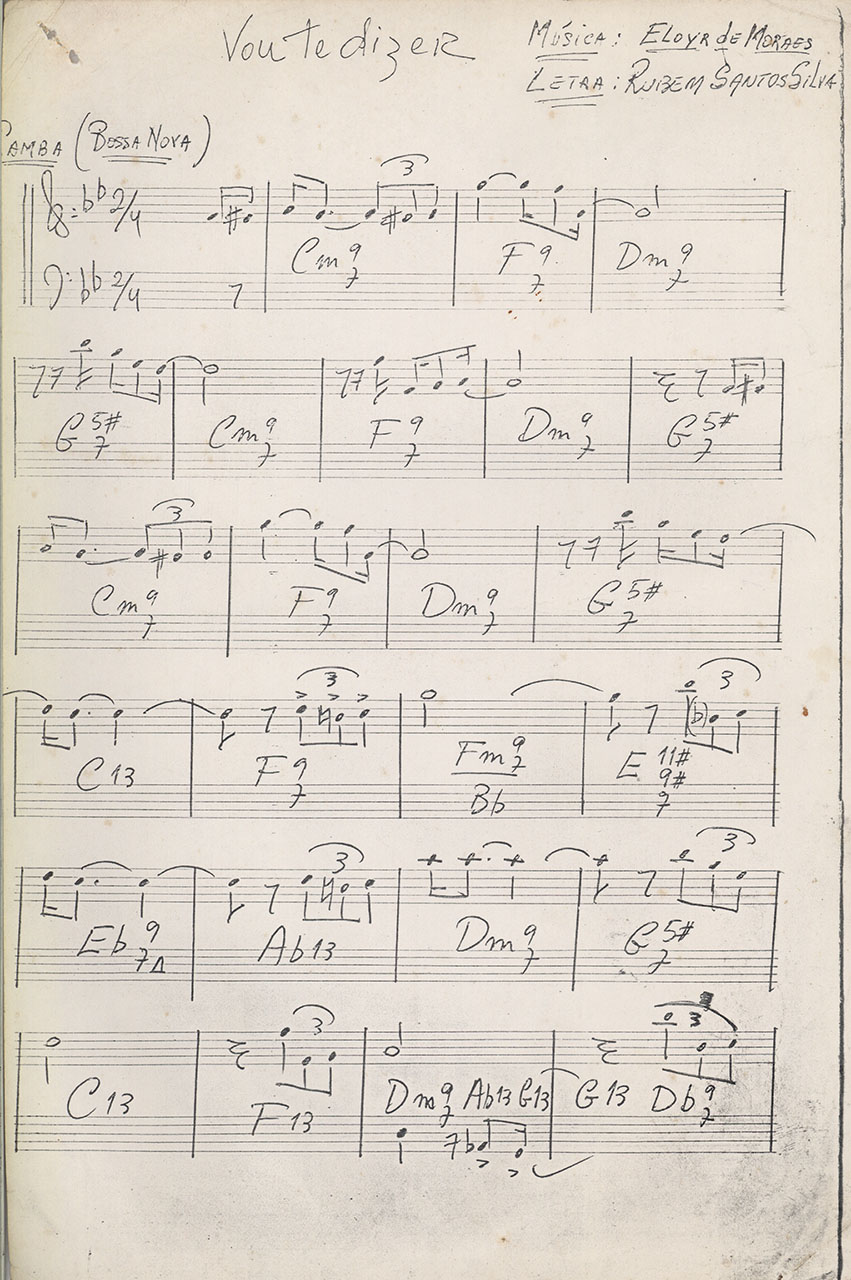 Vou te dizer
Música: Eloyr de Moraes
Letra: Rubem Santos Silva
Samba (Bossa Nova)
bb 2/4
3
bb 2/4
Cm 9 7 F 9 7 Dm 9 7
G 5# 7 Cm 9 7 F 9 7 Dm 9 7 G 5# 7
3
Cm 9 7 F 9 7 Dm 9 7 G 5# 7
3 3
C13 F 9 7 Fm 9 7 / Bb E 11# 9# 7
3 3
Eb 9 7Δ Ab13 Dm 9 7 G 5# 7
3 3
C13 F13 Dm 9 7 Ab13 G13 G13 Db 9 7